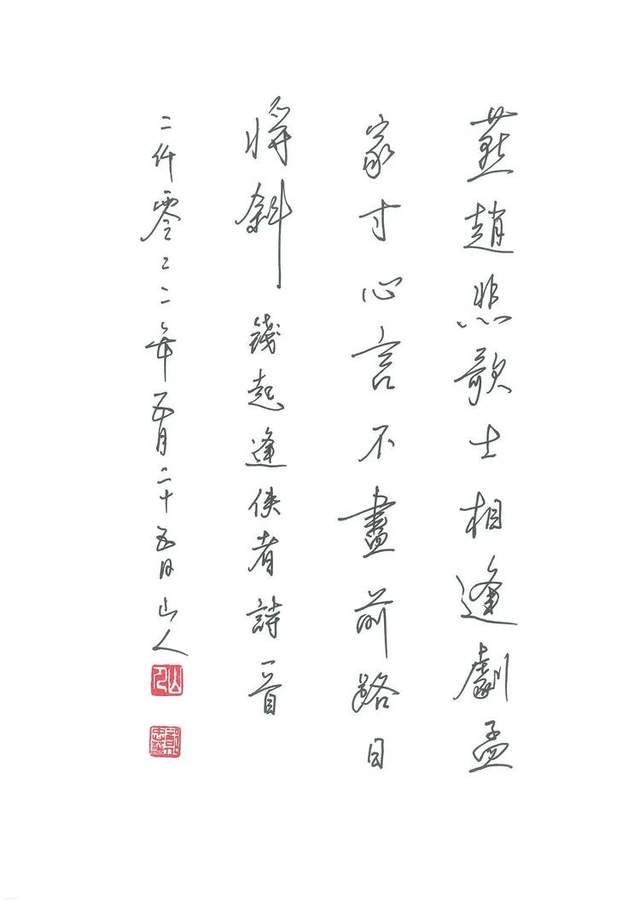 燕趙悲歌士相逢劇孟
家寸心言不盡前路日
將斜 錢起逢俠者詩一首
二仟零二二年五月二十五日山人
山人